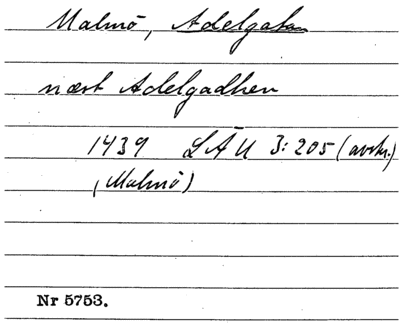 Malmö, Adelgatan
næst Adelgadhen
1439 LÄU 3:205 (avskr.)
(Malmö)
Nr 5753.